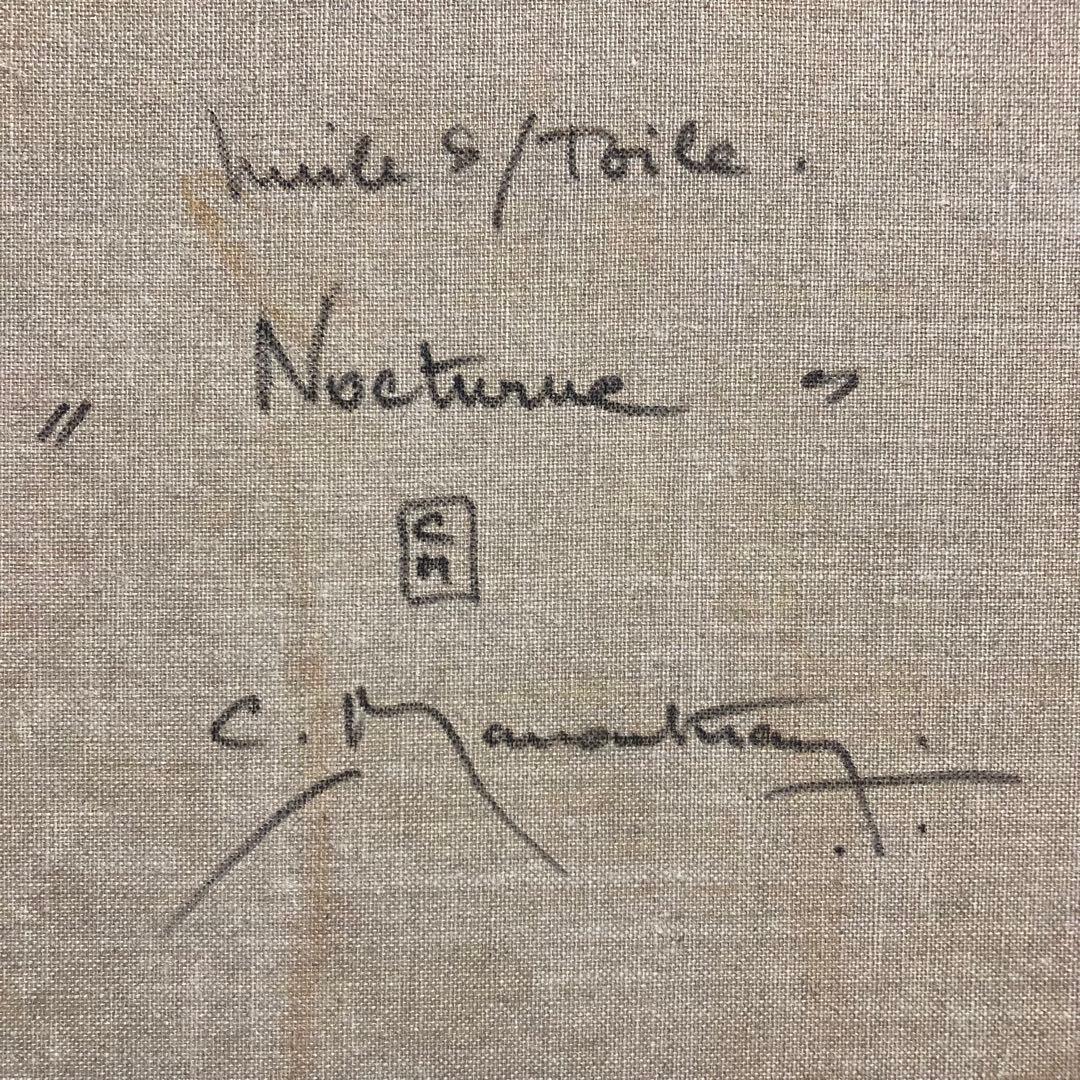 huile s/Toile.
" Nocturne "
C
M
C. Manoukian.